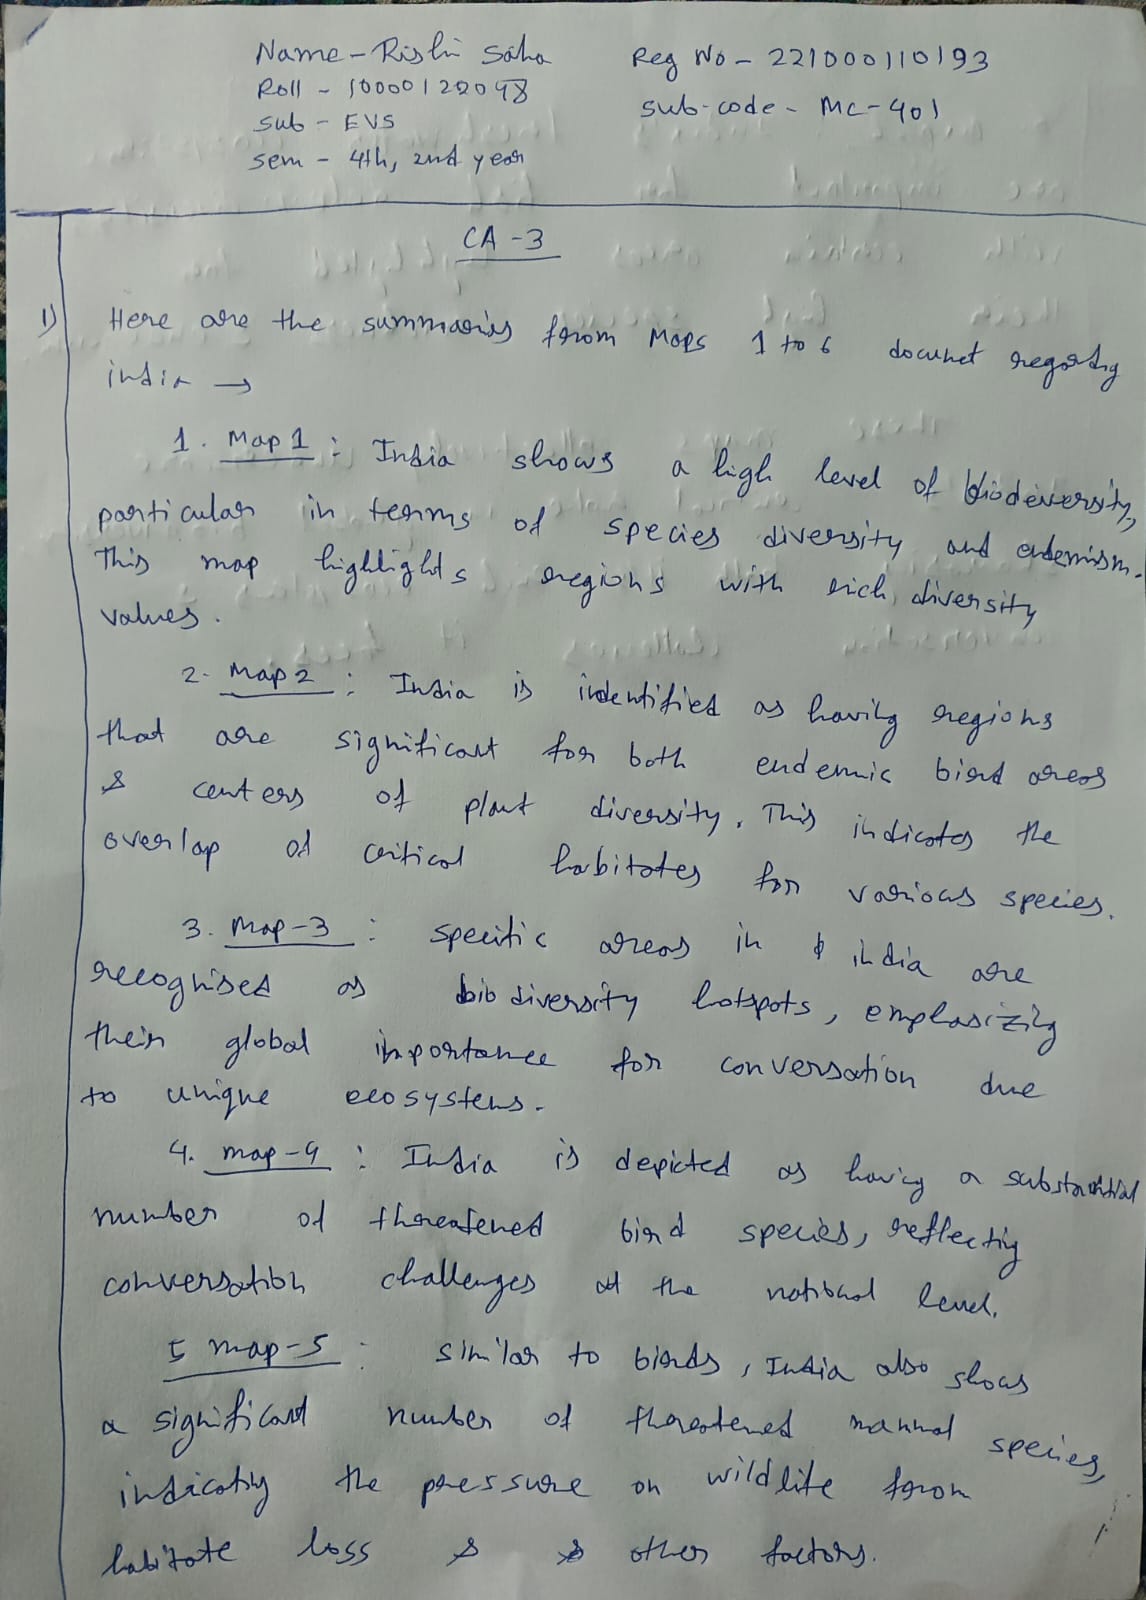 Name - Rishi Saha
Reg No - 221000110193
Roll - 10000122048
sub-code - MC-401
Sub - EVS
Sem - 4th, 2nd year
CA-3
1) Here are the summaries from Maps 1 to 6 documet regarding
india →
1. Map 1 : India shows a high level of biodeversity,
particular in terms of species diversity and endemism.
This map highlights regions with rich diversity
values.
2. Map 2 : India is indentified as having regions
that are significant for both endemic bird areas
& centers of plant diversity. This indicates the
overlap of critical habitates for various species.
3. Map-3 : specific areas in india are
recognised as biodiversity hotspots, emphasizing
their global importance for conversation due
to unique ecosystems.
4. map-4 : India is depicted as having a substantial
number of threatened bird species, reflecting
conversation challenges at the national level.
5 map-5 : similar to birds, India also shows
a significant number of threatened mammal species,
indicating the pressure on wildlife from
habitate loss & & other factors.